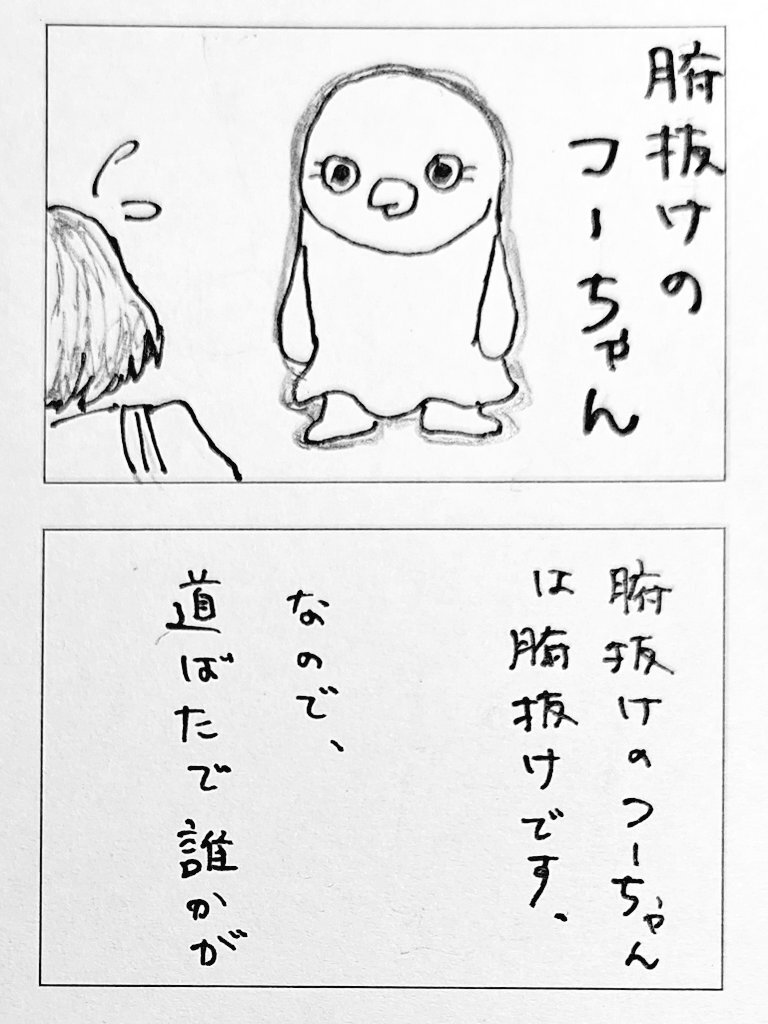 腑抜けの
つーちゃん
腑抜けのつーちゃん
は腑抜けです。
なので、
道ばたで誰かが